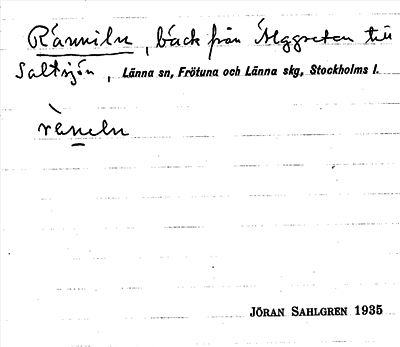 Ränniln, bäck från Aleggretan till
Saltsjön, Länna sn, Frötuna och Länna skg, Stockholms l.
rèneln
JÖRAN SAHLGREN 1935